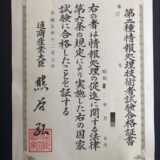 第二種情報処理技術者試験合格証書
昭和
右の者は情報処理の促進に関する法律
第六条の規定により実施した右の国家
試験に合格したことを証する
平成五年十二月七日
通商産業大臣 熊谷弘